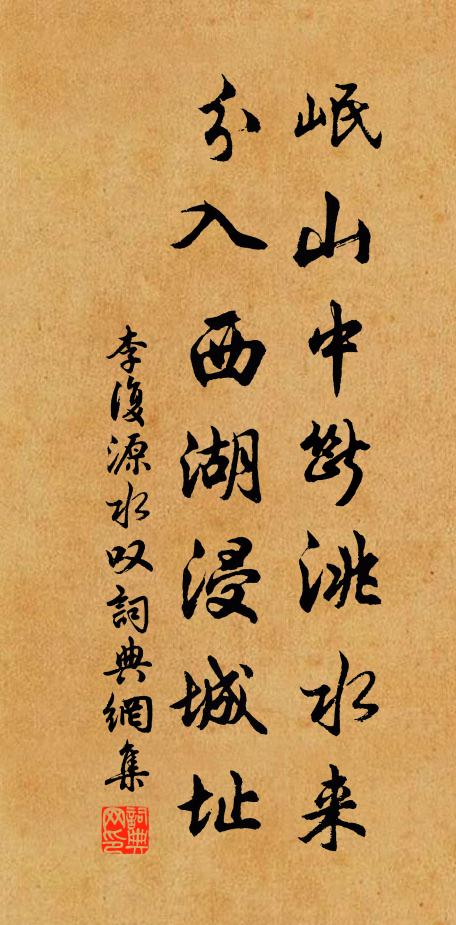 岷山中断洮水来
分入西湖浸城址
李復源水叹詞典網集
詞典网印